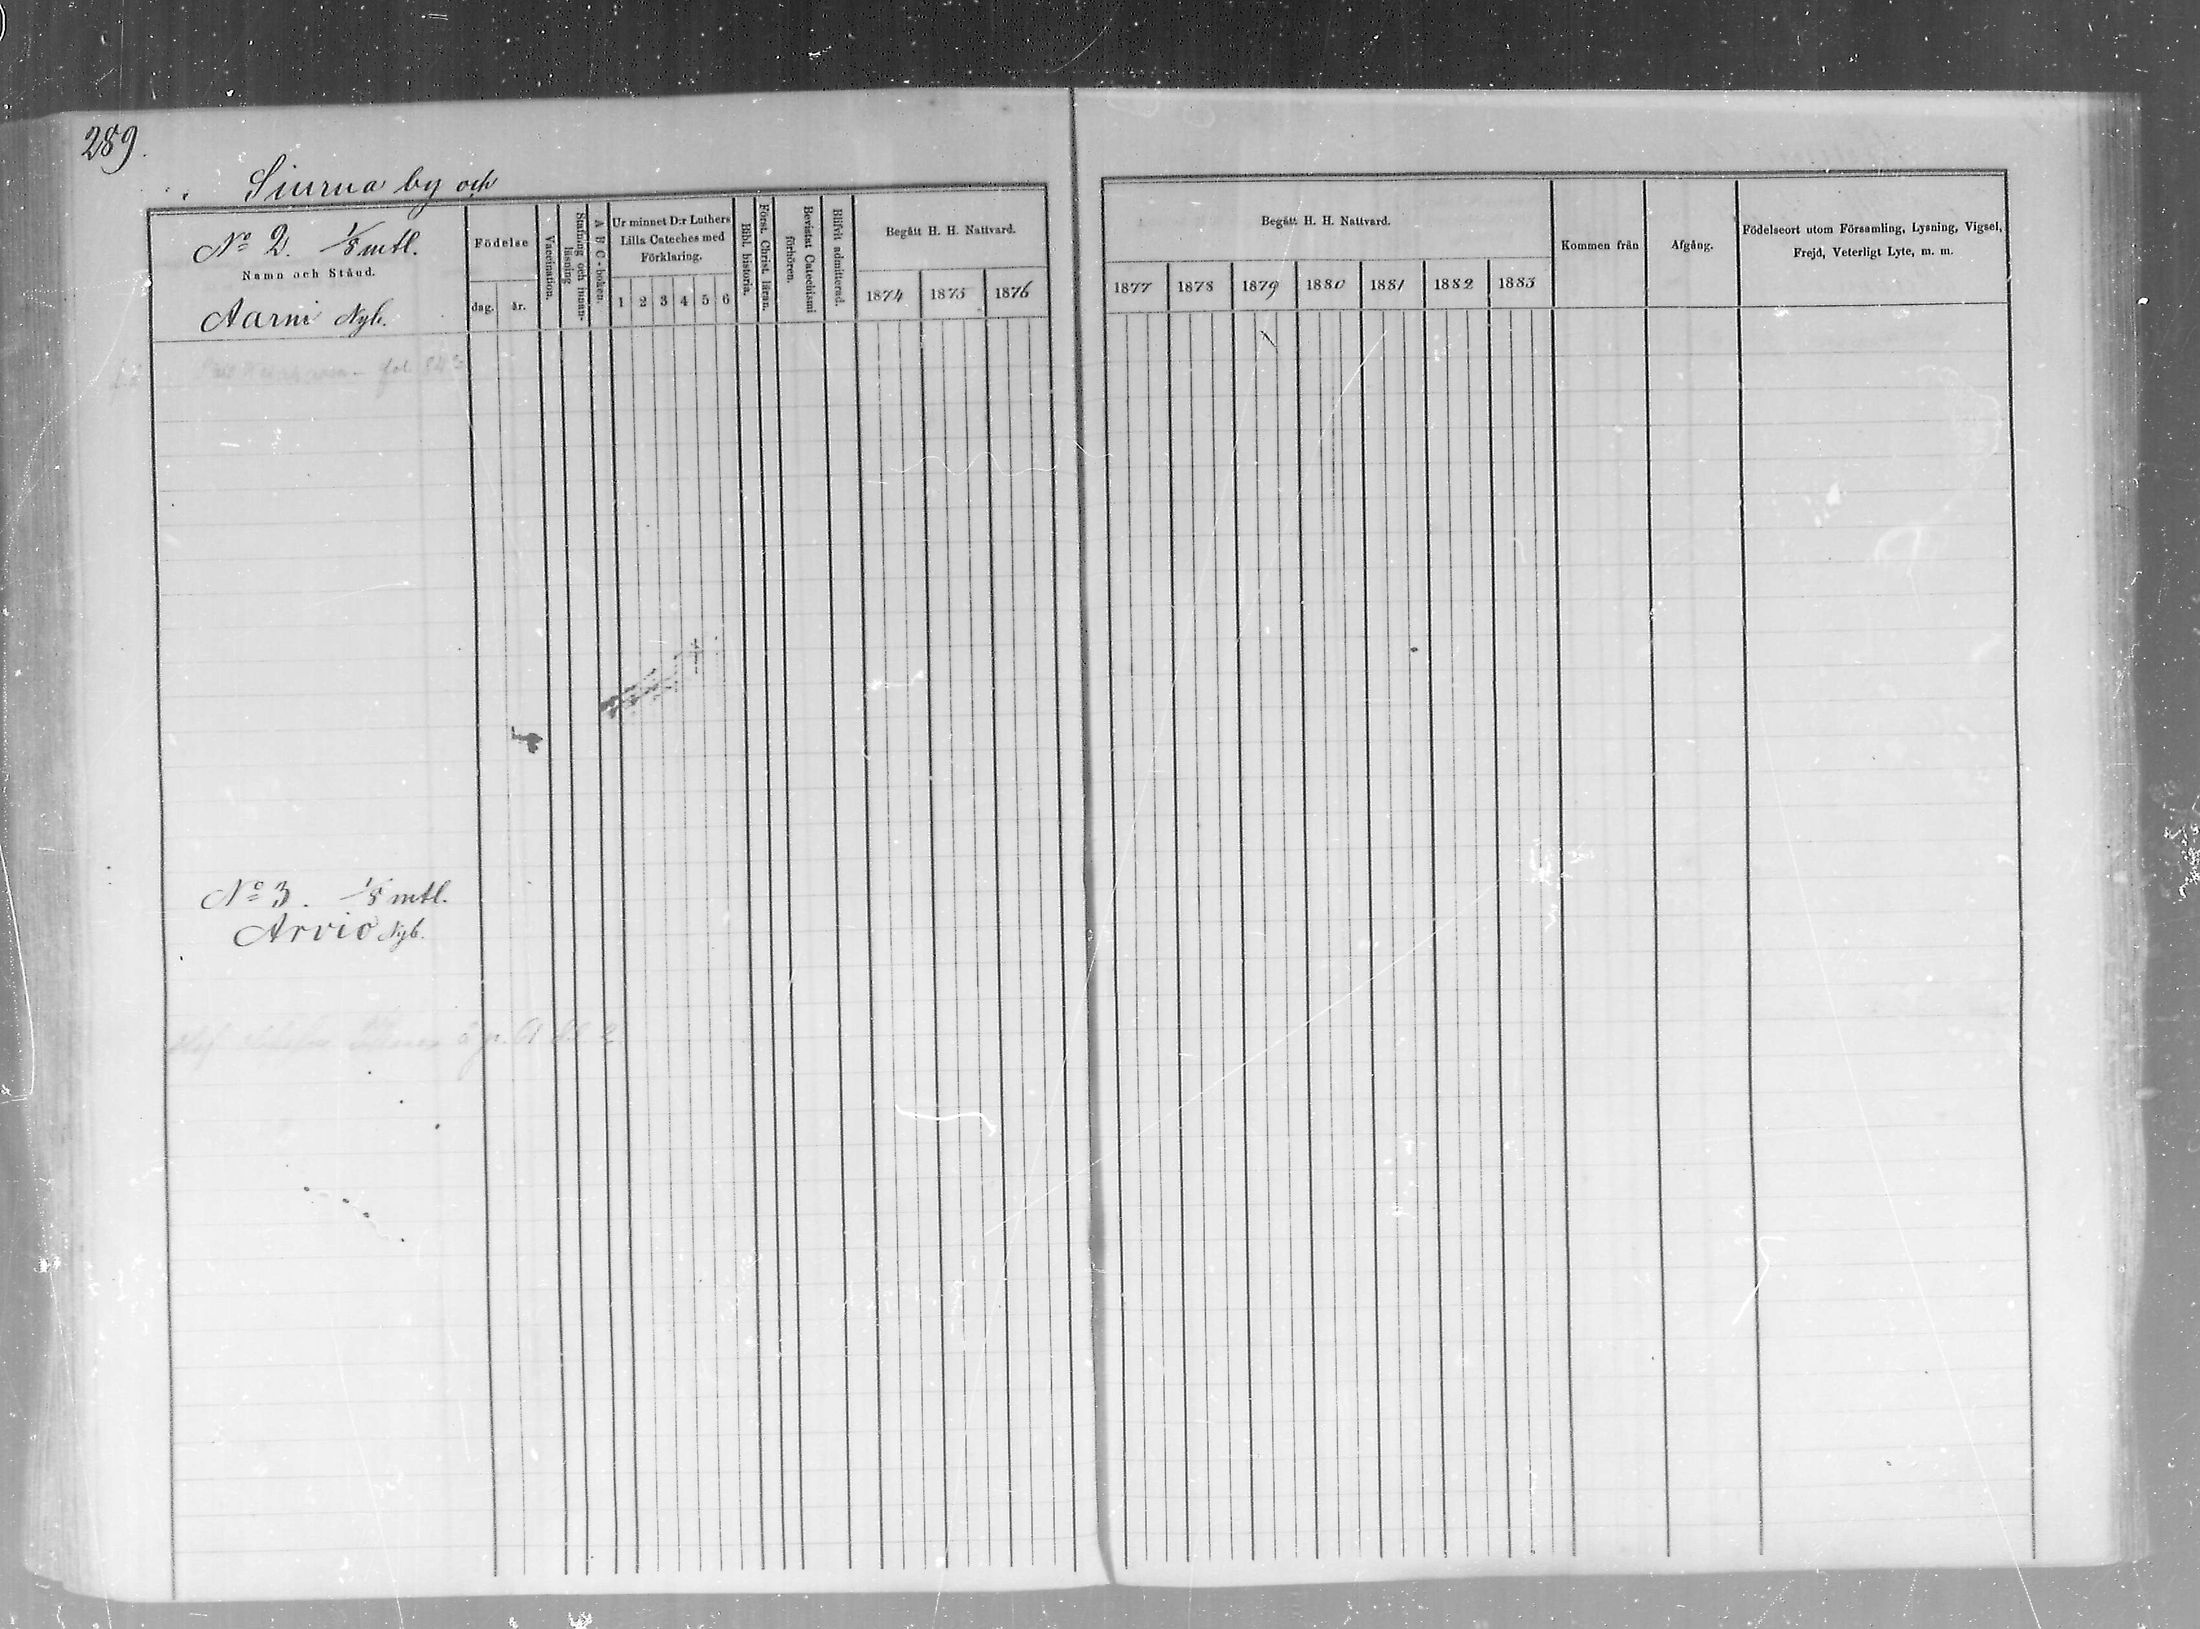 289.
Siurua by och
No 2. 1/8 mtl.
Namn och Stånd.
Aarni Nyb.
Födelse
dag.
år.
Vaccination.
Stafning och innan-
läsning
A B C-boken.
Ur minnet D:r Luthers
Lilla Cateches med
Förklaring.
1 2 3 4 5 6
Bibl. historia.
Först. Christ. läran.
Bevistat Catechismi
förhören.
Blifvit admitterad.
Begått H. H. Nattvard.
1874 1875 1876
Begått H. H. Nattvard.
1877 1878 1879 1880 1881 1882 1883
Kommen från
Afgång.
Födelseort utom Församling, Lysning, Vigsel,
Frejd, Veterligt Lyte, m. m.
fol.
No 3. 1/8 mtl.
Arvio Nyb.